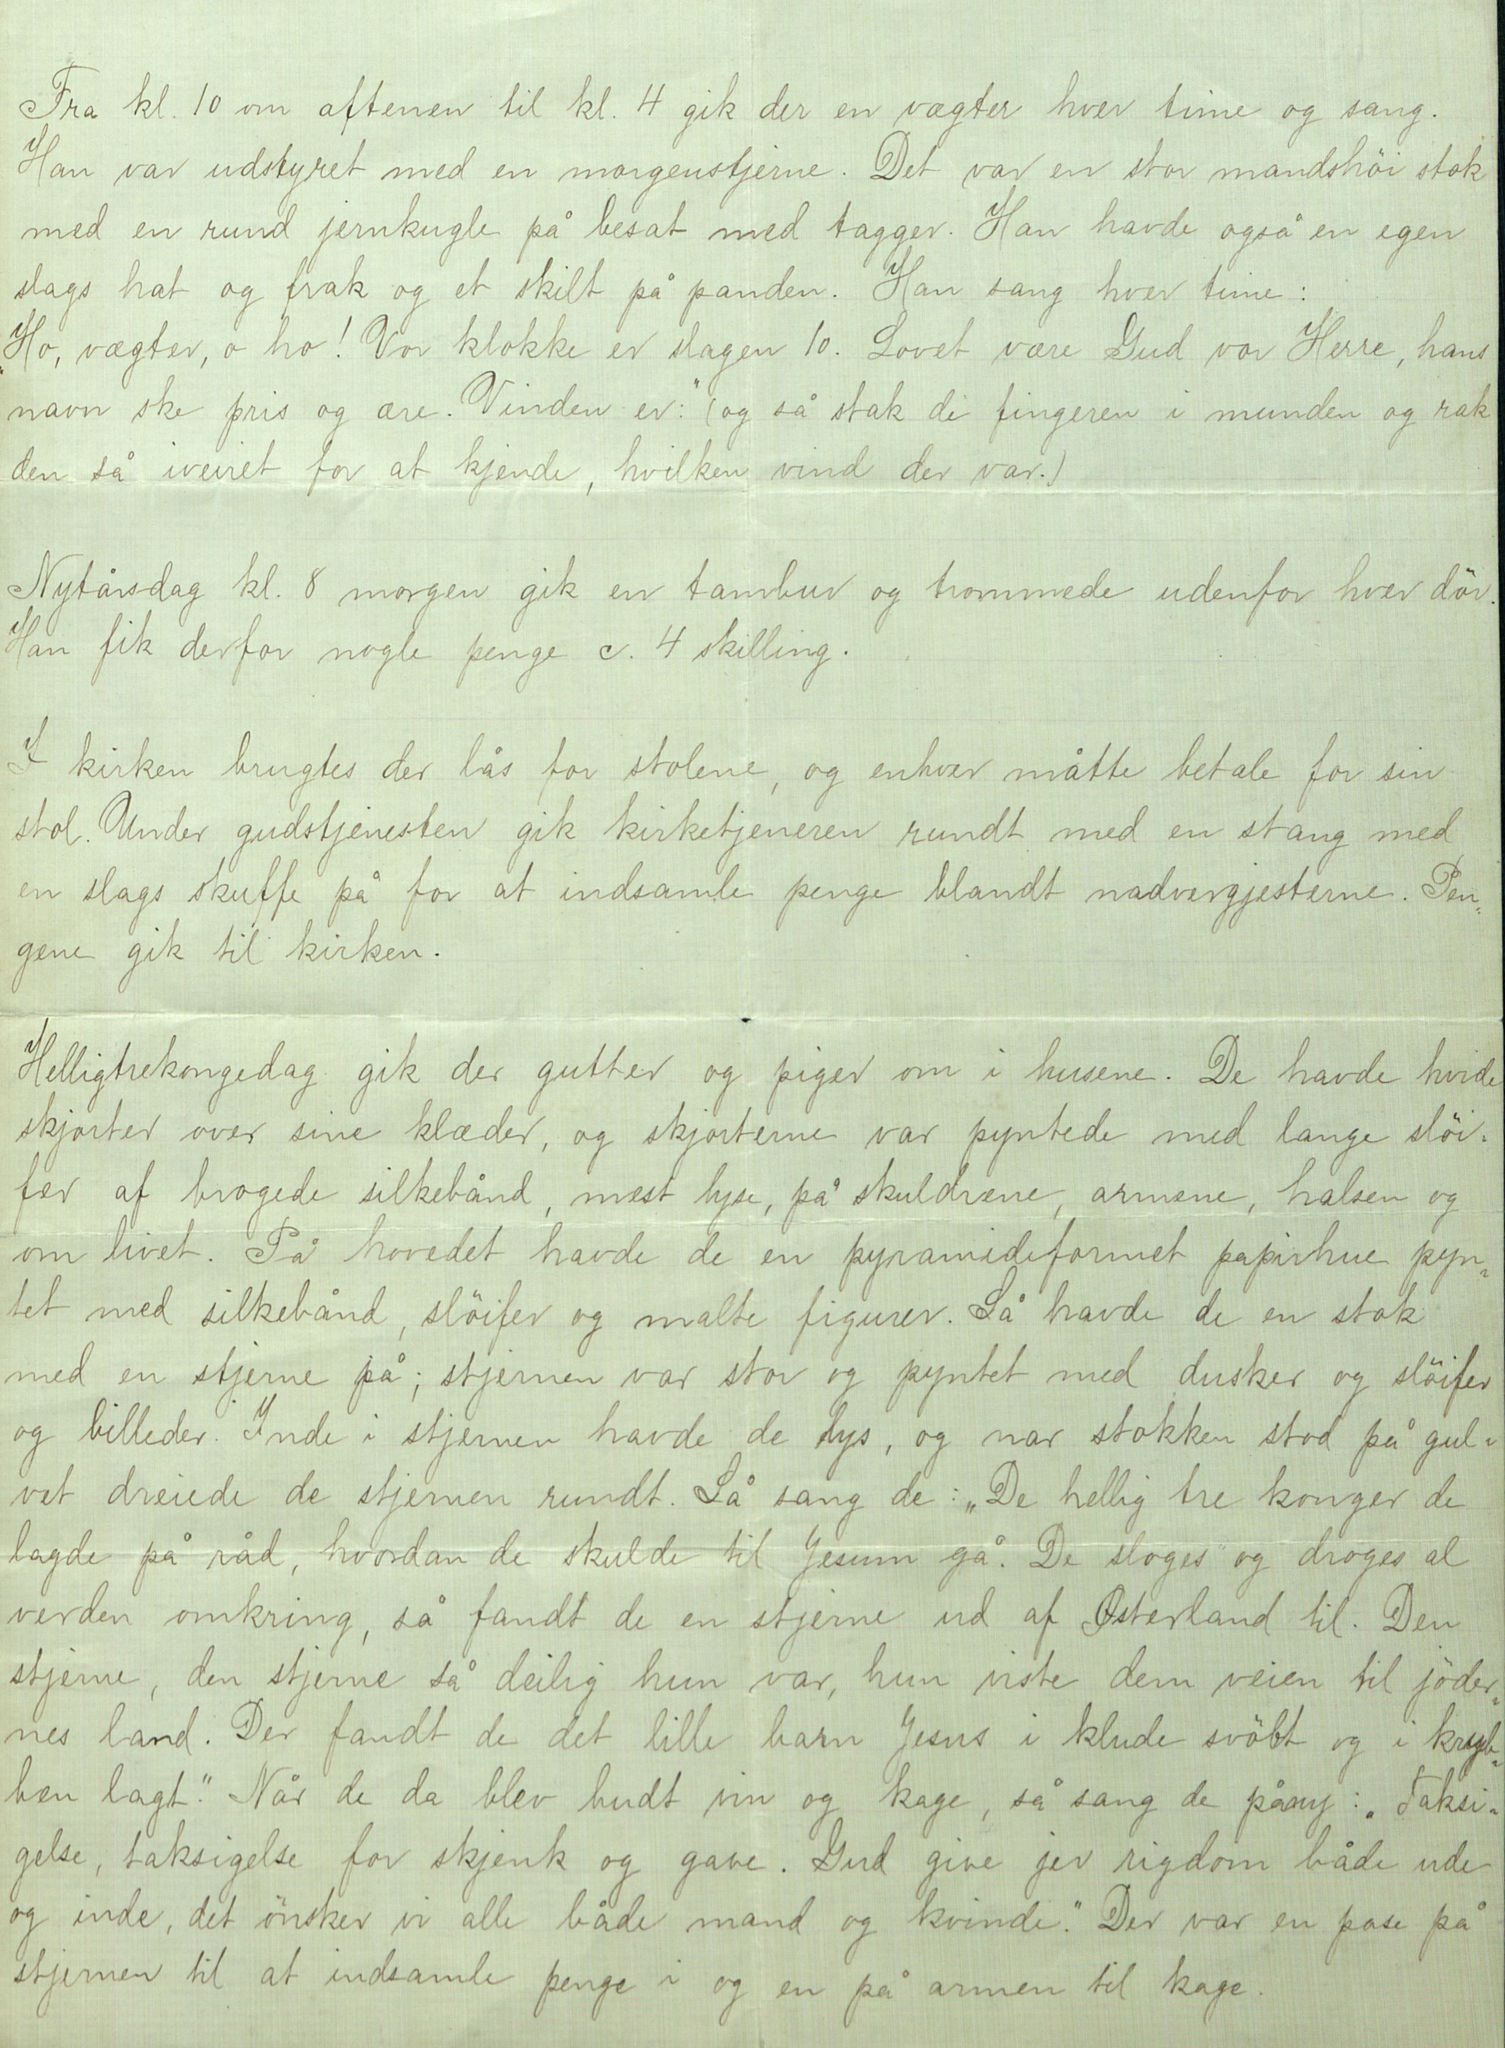 Fra kl. 10 om aftenen til kl. 4 gik der en vægter hver time og sang.
Han var udstyret med en morgenstjerne. Det var en stor mandshöi stok
med en rund jernkugle på besat med tagger. Han havde også en egen
slags hat og frak og et skilt på panden. Han sang hver time:
„Ho, vægter, o ho! Vor klokke er slagen 10. Lovet være Gud vor Herre, hans
navn ske pris og ære. Vinden er:" (og så stak de fingeren i munden og rak
den så iveiret for at kjende, hvilken vind der var.)

Nytårsdag kl. 8 morgen gik en tambur og trommede udenfor hver dör.
Han fik derfor nogle penge c. 4 skilling.

I kirken brugtes der lås for stolene, og enhver måtte betale for sin
stol. Under gudstjenesten gik kirketjeneren rundt med en stang med
en slags skuffe på for at indsamle penge blandt nadvergjesterne. Pen-
gene gik til kirken.

Helligtrekongedag gik der gutter og piger om i husene. De havde hvide
skjorter over sine klæder, og skjorterne var pyntede med lange slöi-
fer af brogede silkebånd, mest lyse, på skuldrene, armene, halsen og
om livet. På hovedet havde de en pyramideformet papirhue pyn-
tet med silkebånd, slöifer og malte figurer. Så havde de en stok
med en stjerne på; stjernen var stor og pyntet med dusker og slöifer
og billeder. Inde i stjernen havde de lys, og nar stokken stod på gul-
vet dreiede de stjernen rundt. Så sang de: „De hellig tre konger de
lagde på råd, hvordan de skulde til Jesum gå. De sloges og droges al
verden omkring, så fandt de en stjerne ud af Østerland til. Den
stjerne, den stjerne så deilig hun var, hun viste dem veien til jöder-
nes land. Der fandt de det lille barn Jesus i klude svöbt og i kryb-
ben lagt." Når de da blev budt vin og kage, så sang de påny: „Taksi-
gelse, taksigelse for skjenk og gave. Gud give jer rigdom både ude
og inde, det önsker vi alle både mand og kvinde." Der var en pose på
stjernen til at indsamle penge i og en på armen til kage.